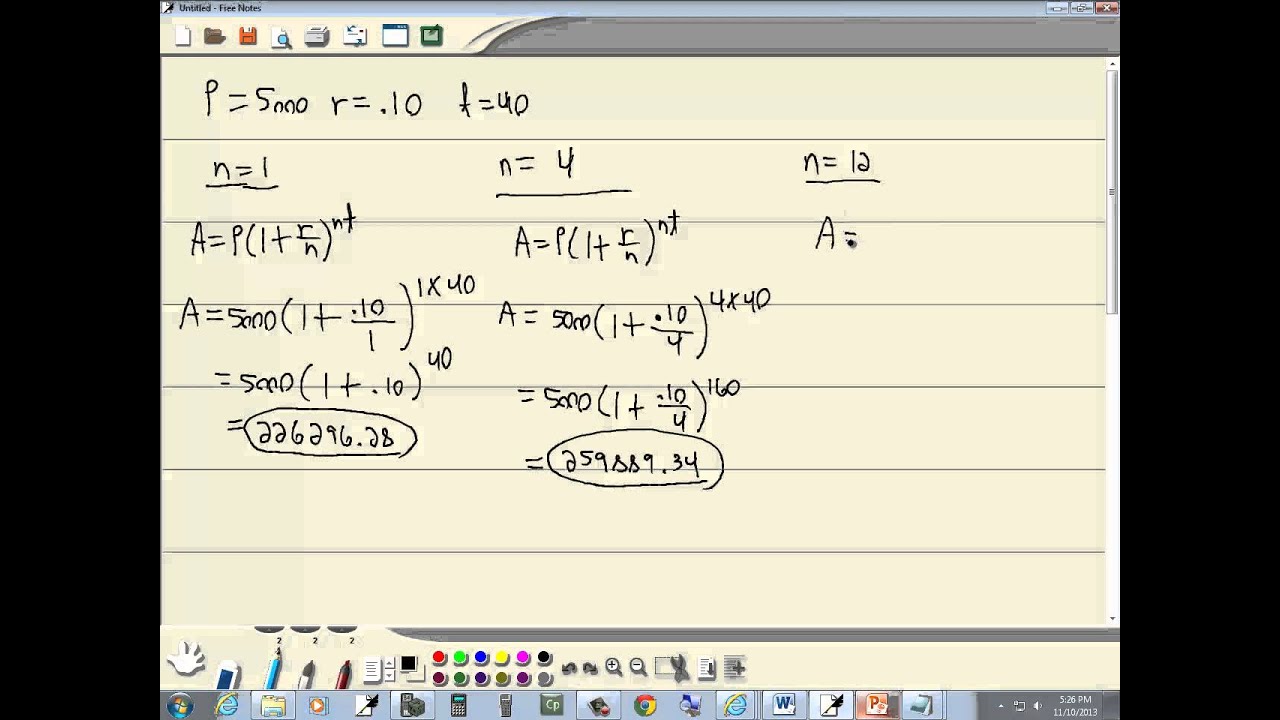 Untitled - Free Notes
P = 5000 r = .10 t = 40
n = 1
A = P(1 + r/n)^nt
A = 5000(1 + .10/1)^1×40
= 5000(1 + .10)^40
= 226296.28
n = 4
A = P(1 + r/n)^nt
A = 5000(1 + .10/4)^4×40
= 5000(1 + .10/4)^160
= 259889.34
n = 12
A =
2 2 2
Cp
W
P
5:26 PM
11/10/2013